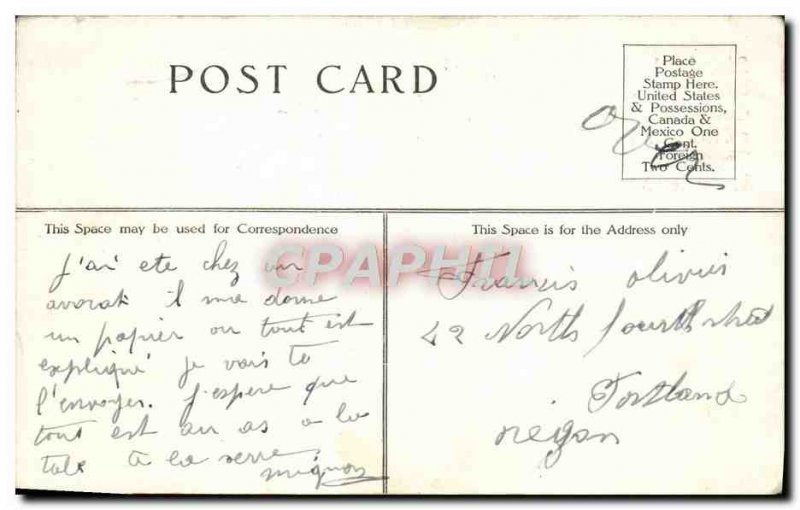 POST CARD
Place
Postage
Stamp Here.
United States
& Possessions,
Canada &
Mexico One
Cent.
Foreign
Two Cents.
over
This Space may be used for Correspondence
This Space is for the Address only
CPAPHIL
J'ai ete chez un
avocat il ma donne
un papier ou tout est
expliqué je vais te
l'envoyer. J'espere que
tout est au as a la
a la
mignon
Francis Olivius
42 North fourth
Portland